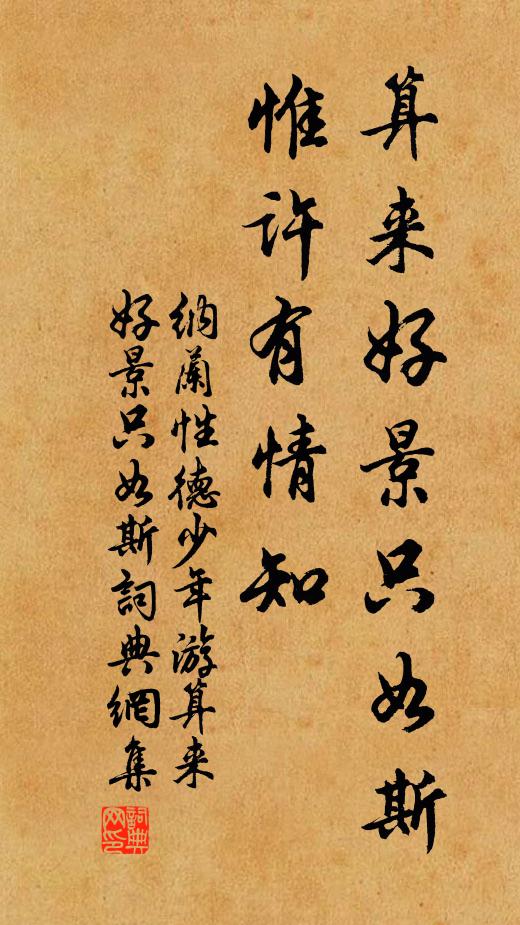 算来好景只如斯
惟许有情知
纳蘭性德少年游算来
好景只如斯詞典網集
詞典网印